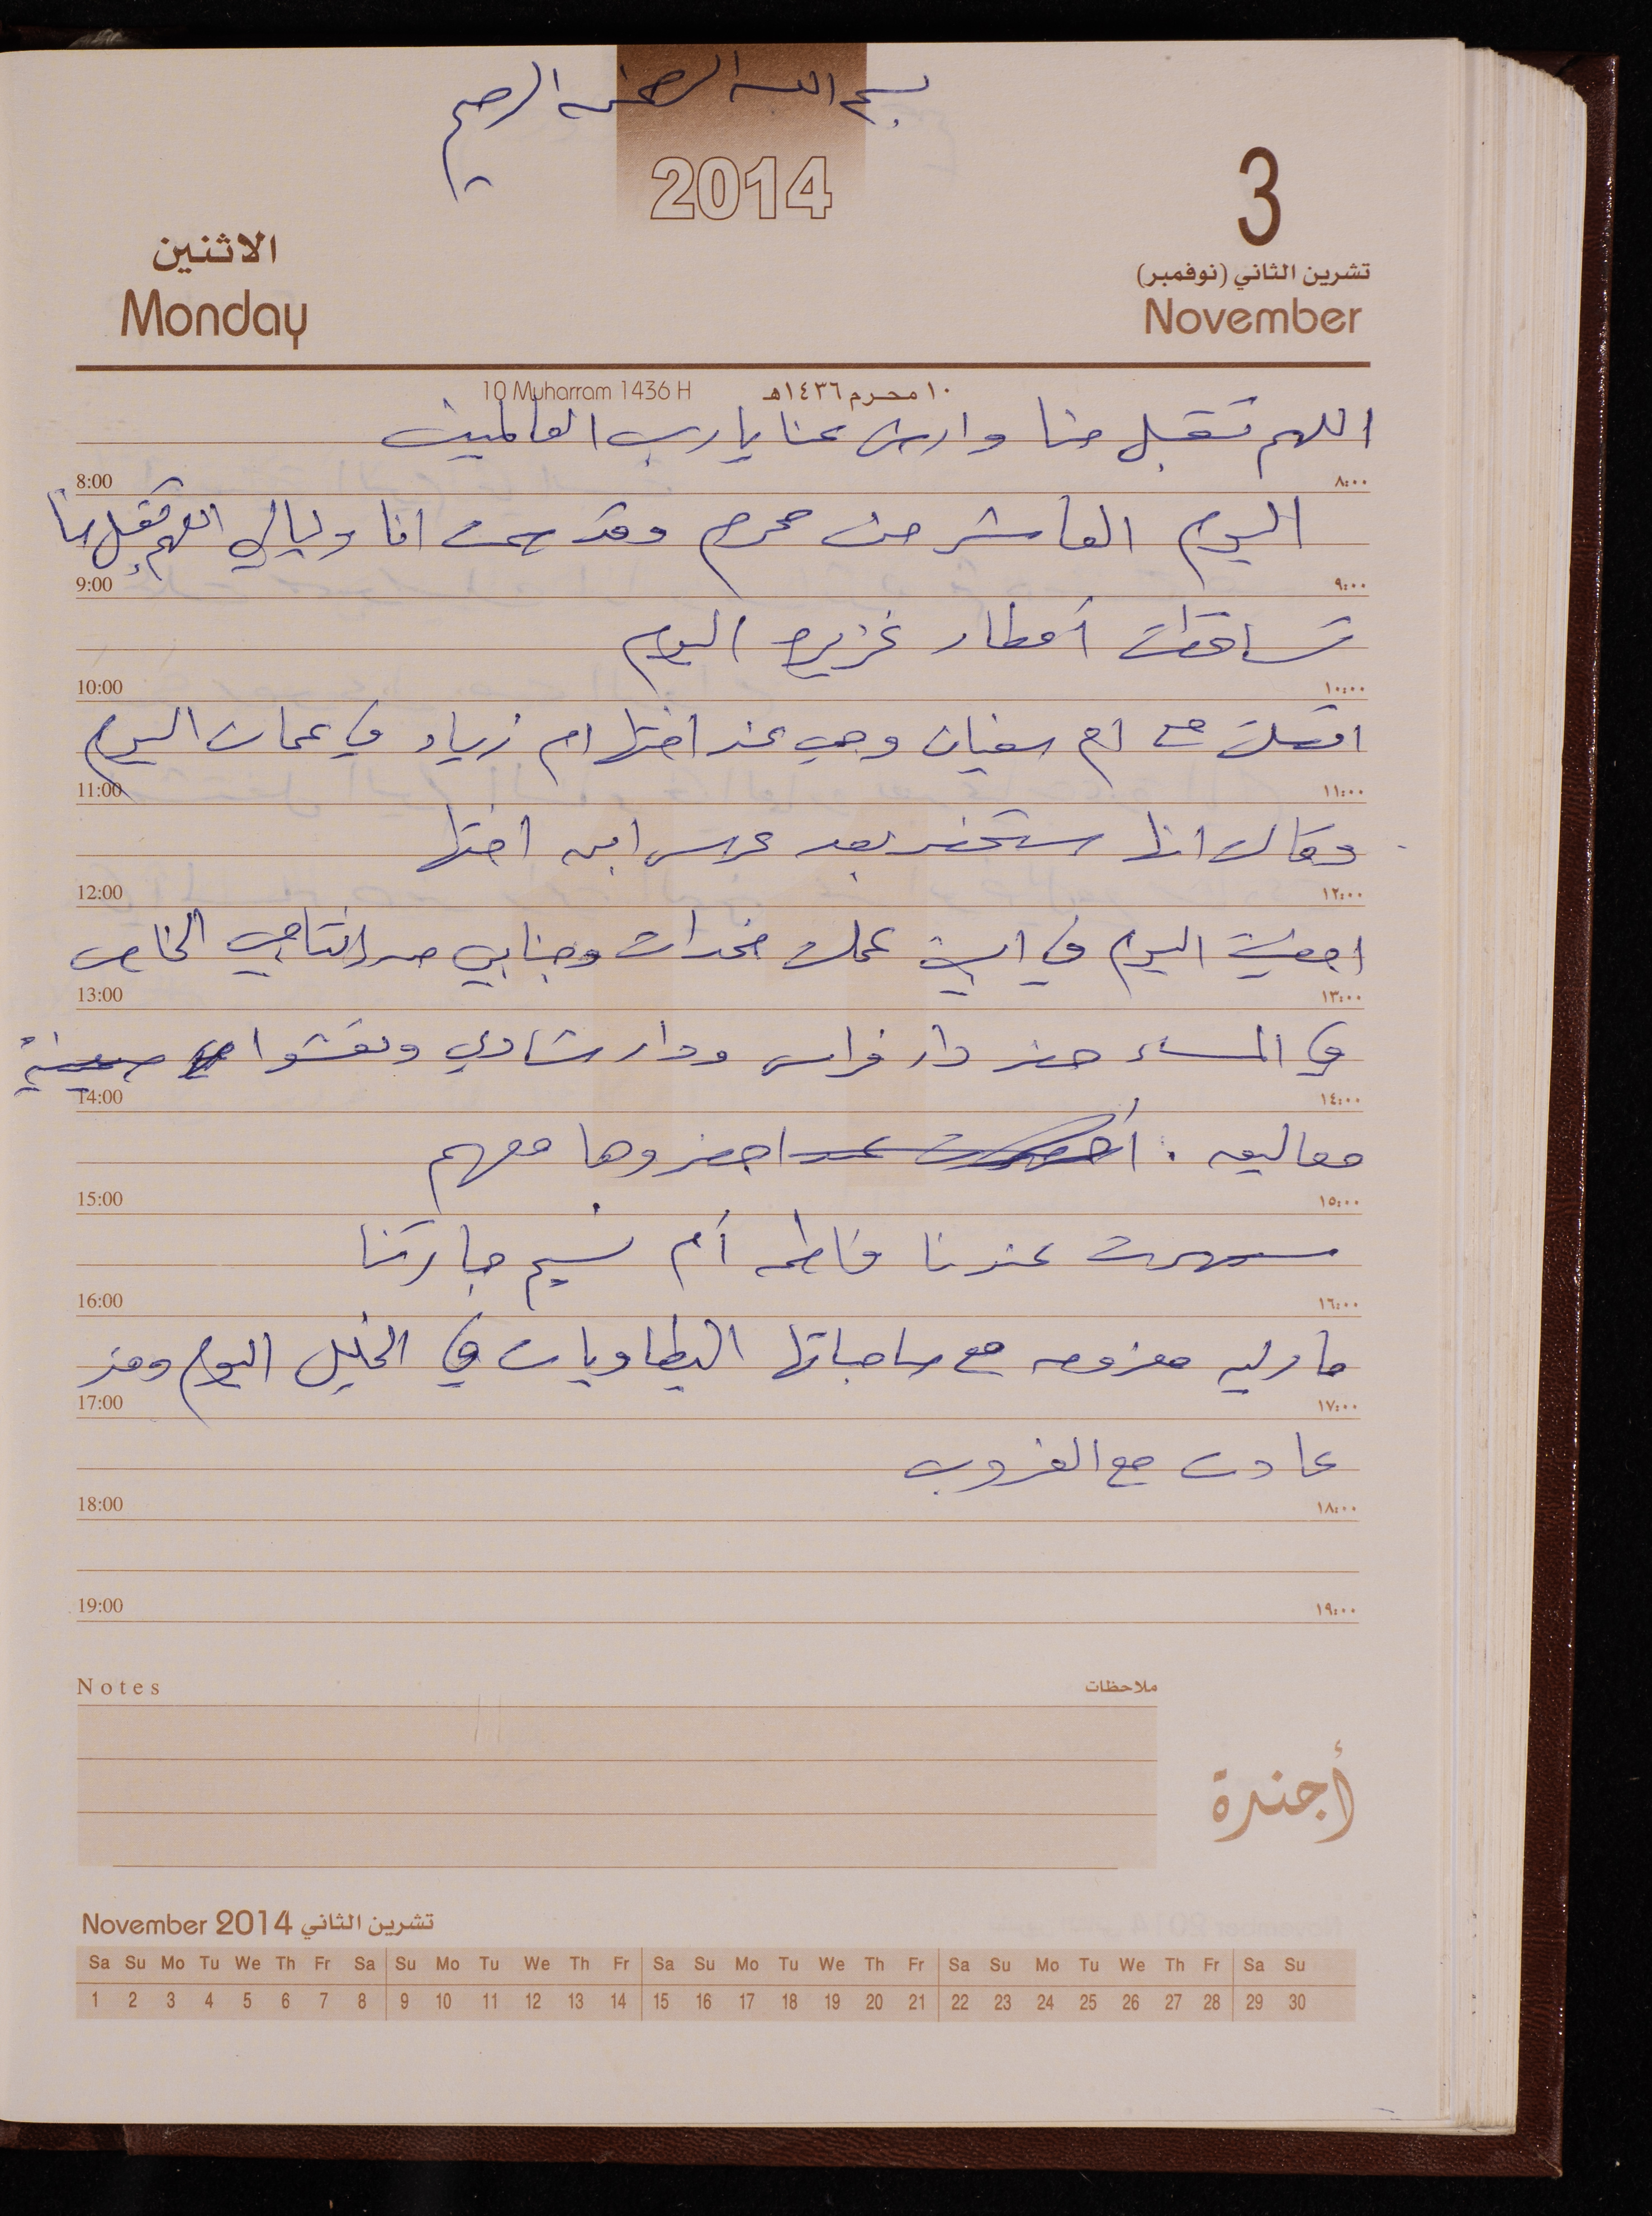 بسم الله الرحمن الرحيم
2014
3
تشرين الثاني (نوفمبر)
November
الاثنين
Monday
10 Muharram 1436 H ١٠ محرم ١٤٣٦هـ
اللهم تقبل منا وارض عنا يا رب العالمين
8:00 ٨:٠٠
اليوم العاشر من محرم وقد صمت انا وليالي اللهم تقبل منا
9:00 ٩:٠٠
تساقطت أمطار غزيره اليوم
10:00 ١٠:٠٠
اتصلت مع ام سفيان وهي عند اختها ام زياد في عمان اليوم
11:00 ١١:٠٠
وقالت انها ستحضر بعد عرس ابن اختها
12:00 ١٢:٠٠
امضيت اليوم في عمل مخدات وجنابي الخاص
13:00 ١٣:٠٠
في المساء حضر دار فراس ودار شادي وتعشوا
14:00 ١٤:٠٠
معاليق . احضروها معهم
15:00 ١٥:٠٠
سهرت عندنا فاطمه أم نسيم جارتنا
16:00 ١٦:٠٠
ماوليه معزومه مع صاحباتها اليطاويات في الخليل اليوم وقد
17:00 ١٧:٠٠
عادت مع الغروب
18:00 ١٨:٠٠
19:00 ١٩:٠٠
Notes ملاحظات
أجندة
November 2014 تشرين الثاني
Sa Su Mo Tu We Th Fr Sa Su Mo Tu We Th Fr Sa Su Mo Tu We Th Fr Sa Su Mo Tu We Th Fr Sa Su
1 2 3 4 5 6 7 8 9 10 11 12 13 14 15 16 17 18 19 20 21 22 23 24 25 26 27 28 29 30